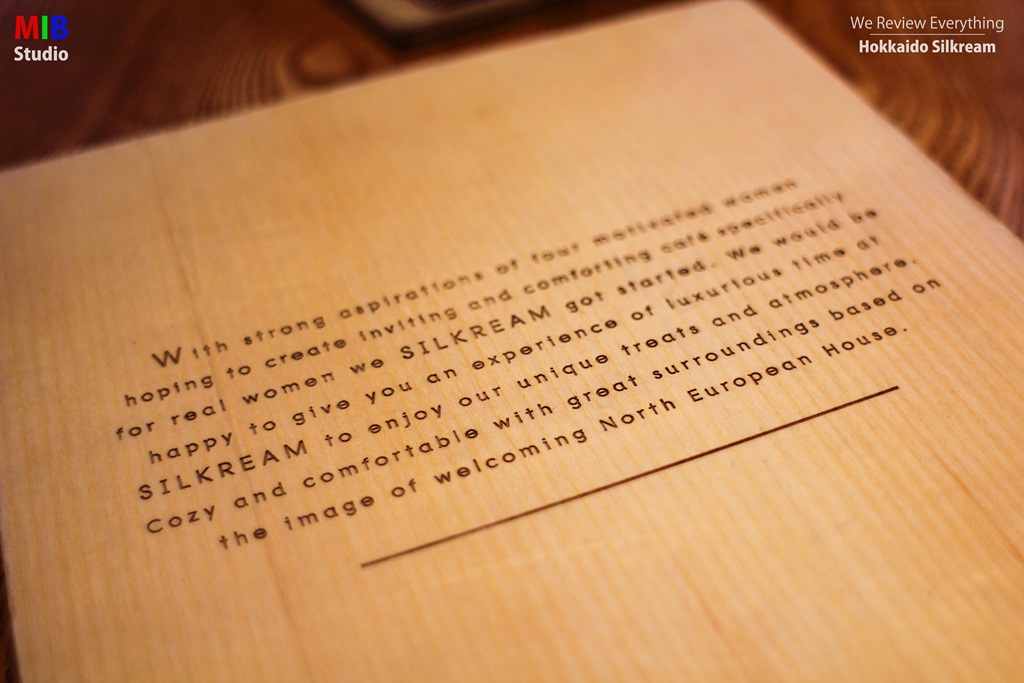 MIB
Studio
We Review Everything
Hokkaido Silkream
With strong aspirations of four motivated women
hoping to create inviting and comforting café specifically
for real women we SILKREAM got started. We would be
happy to give you an experience of luxurious time at
SILKREAM to enjoy our unique treats and atmosphere.
Cozy and comfortable with great surroundings based on
the image of welcoming North European House.